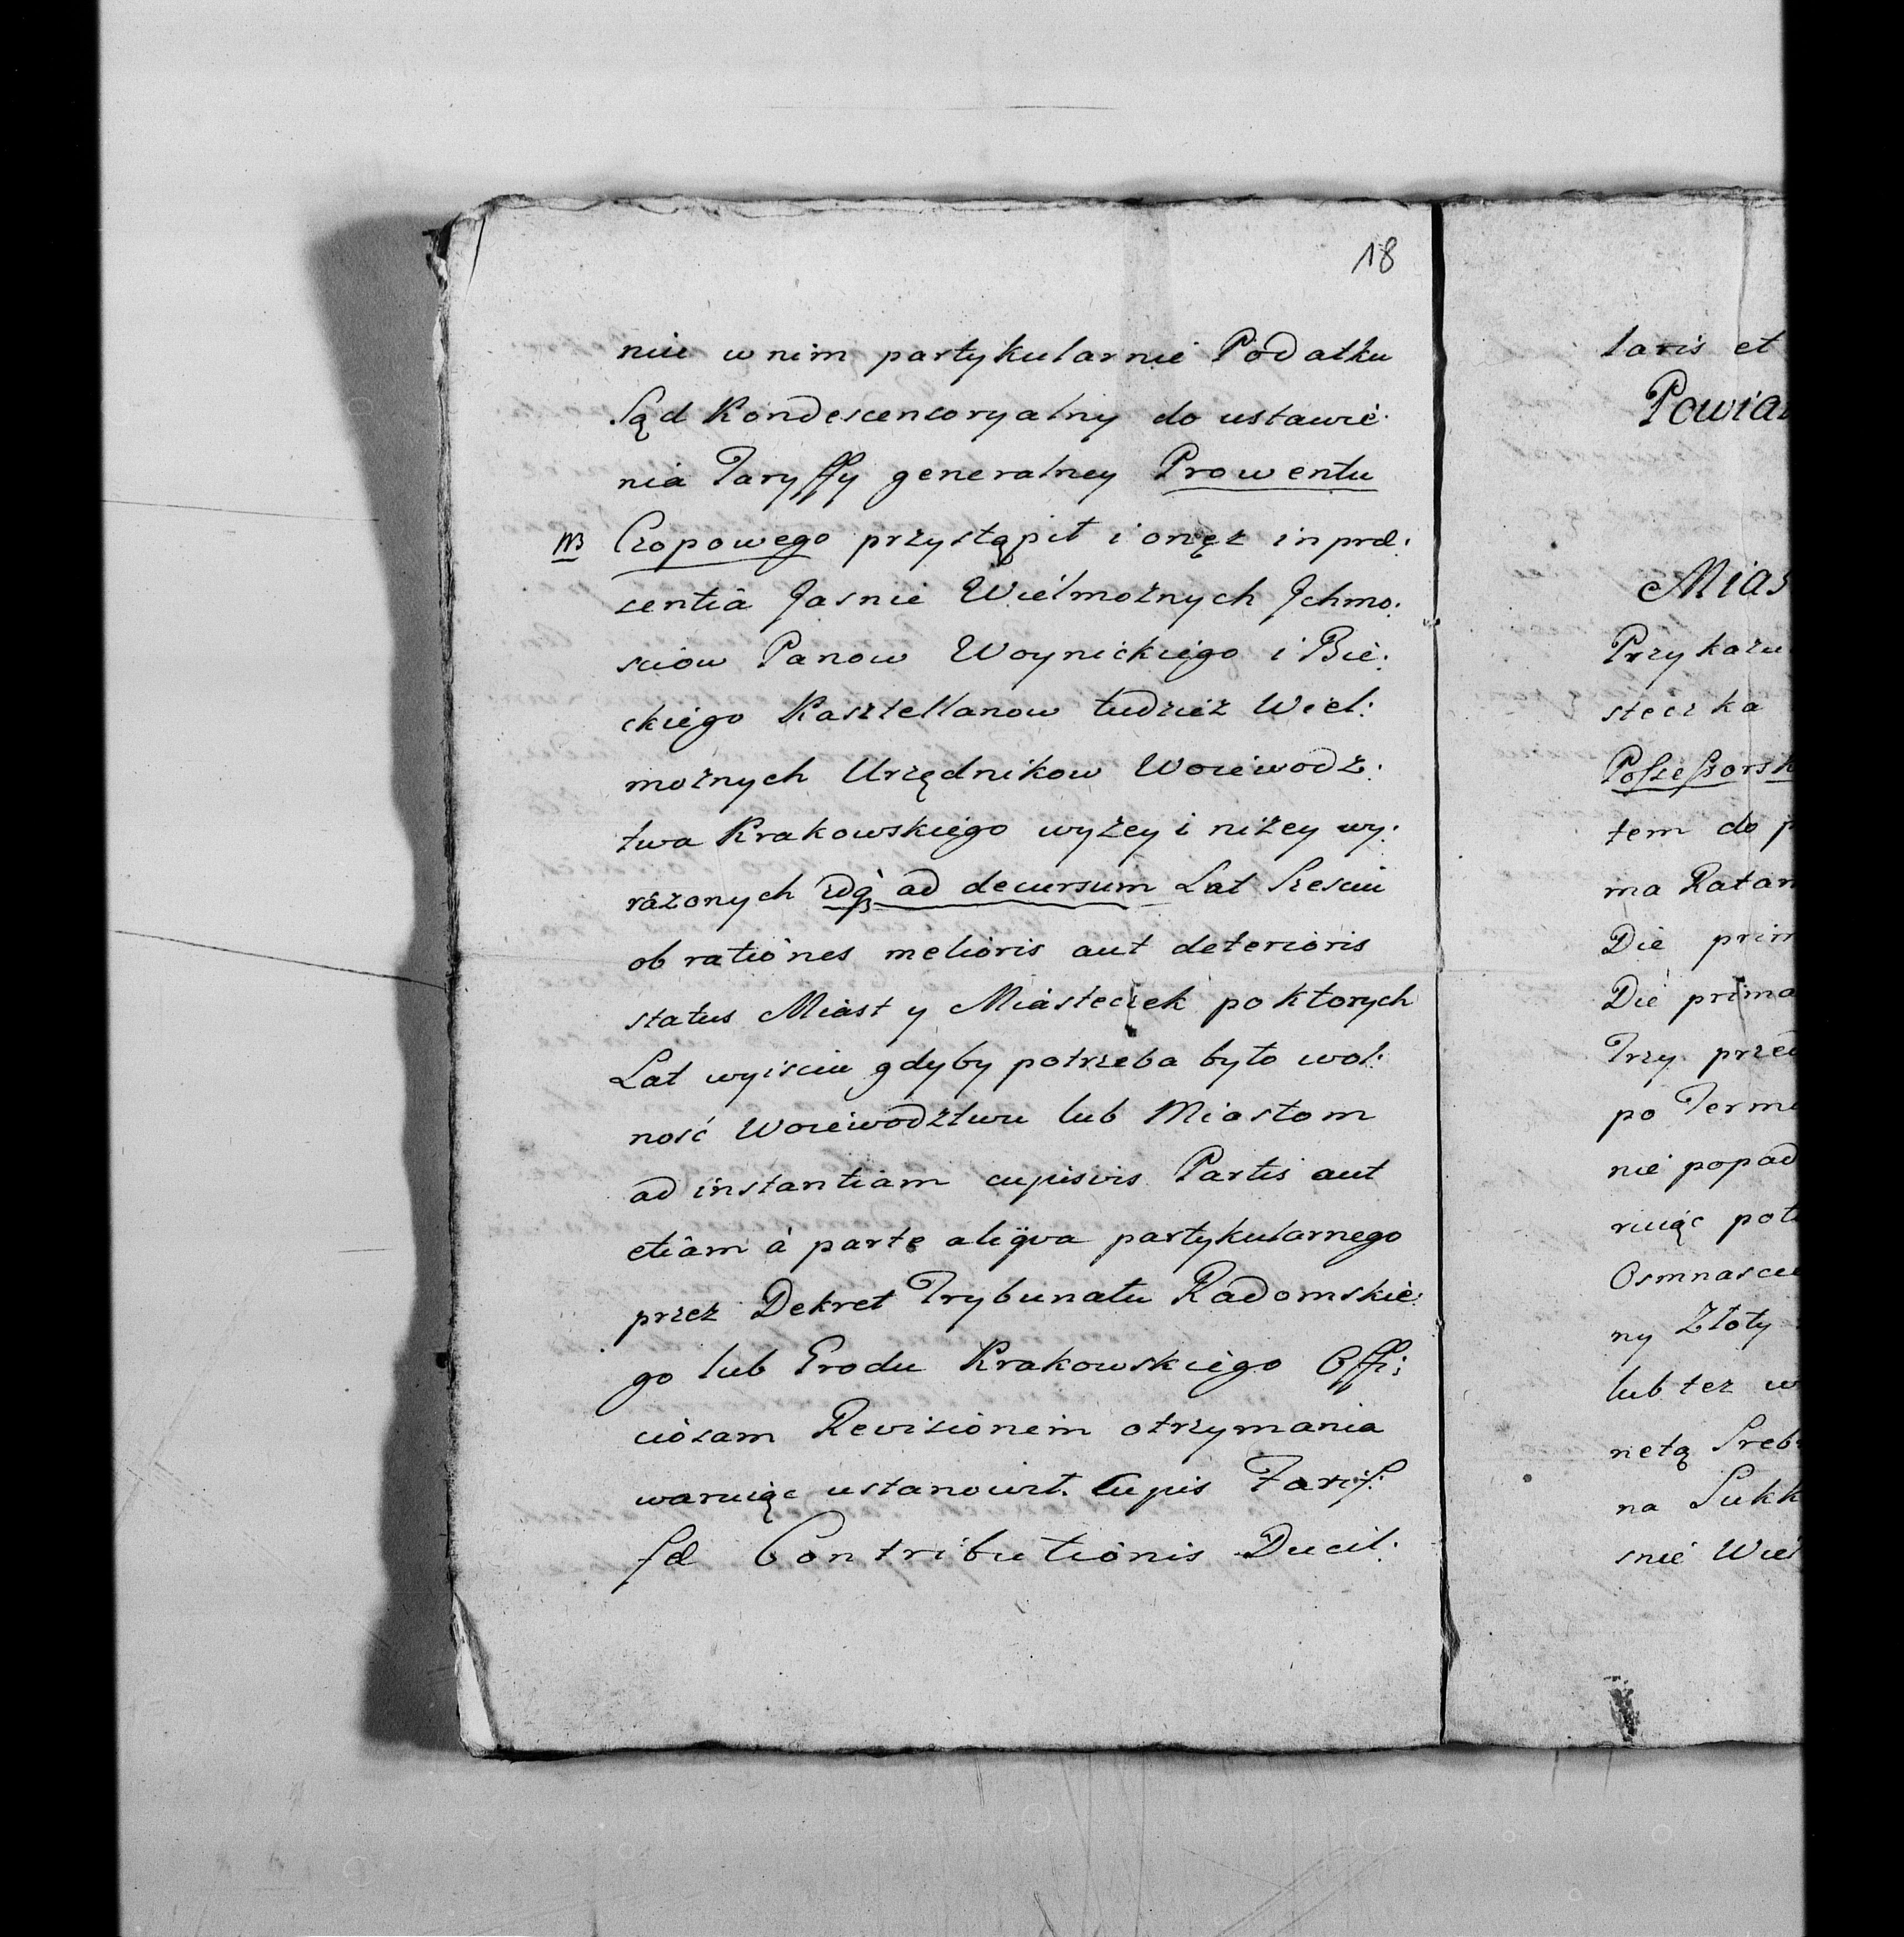 18
niu w nim partykularnie Podatku
Sąd Kondescensoryalny do ustawie:
nia Taryffy generalney Prowentu
NB Czopowego przystąpił i onęż in præ:
sentia Jasnie Wielmożnych Jchmo:
sciow Panow Woynickiego i Bie:
ckiego Kasztellanow tudzież Wiel:
możnych Urzędnikow Woiewodz:
twa Krakowskiego wyżey i niżey wy:
rażonych ad decursum Lat Szesciu
ob rationes melioris aut deterioris
status Miast y Miasteczek po ktorych
Lat wyisciu gdyby potrzeba było wol:
ność Woiewodztwu lub Miastom
ad instantiam cujusvis Partis aut
etiam à parte aliqva partykularnego
przez Dekret Trybunału Radomskie:
go lub Grodu Krakowskiego Offi:
ciosam Revisionem otrzymania
waruiąc ustanowił. Cujus Tarif:
fæ Contributionis Ducil:
laris et
Powiat
Mias
Przykazu
steczka
Possessorsk
tem do p
ma Ratam
Die prim
Die prima
Trzy przed
po Termi
nie popad
ruiąc pot
Osmnasciu
ny Złoty
lub tez w
netą Sreb
na Sukk
snie Wiel